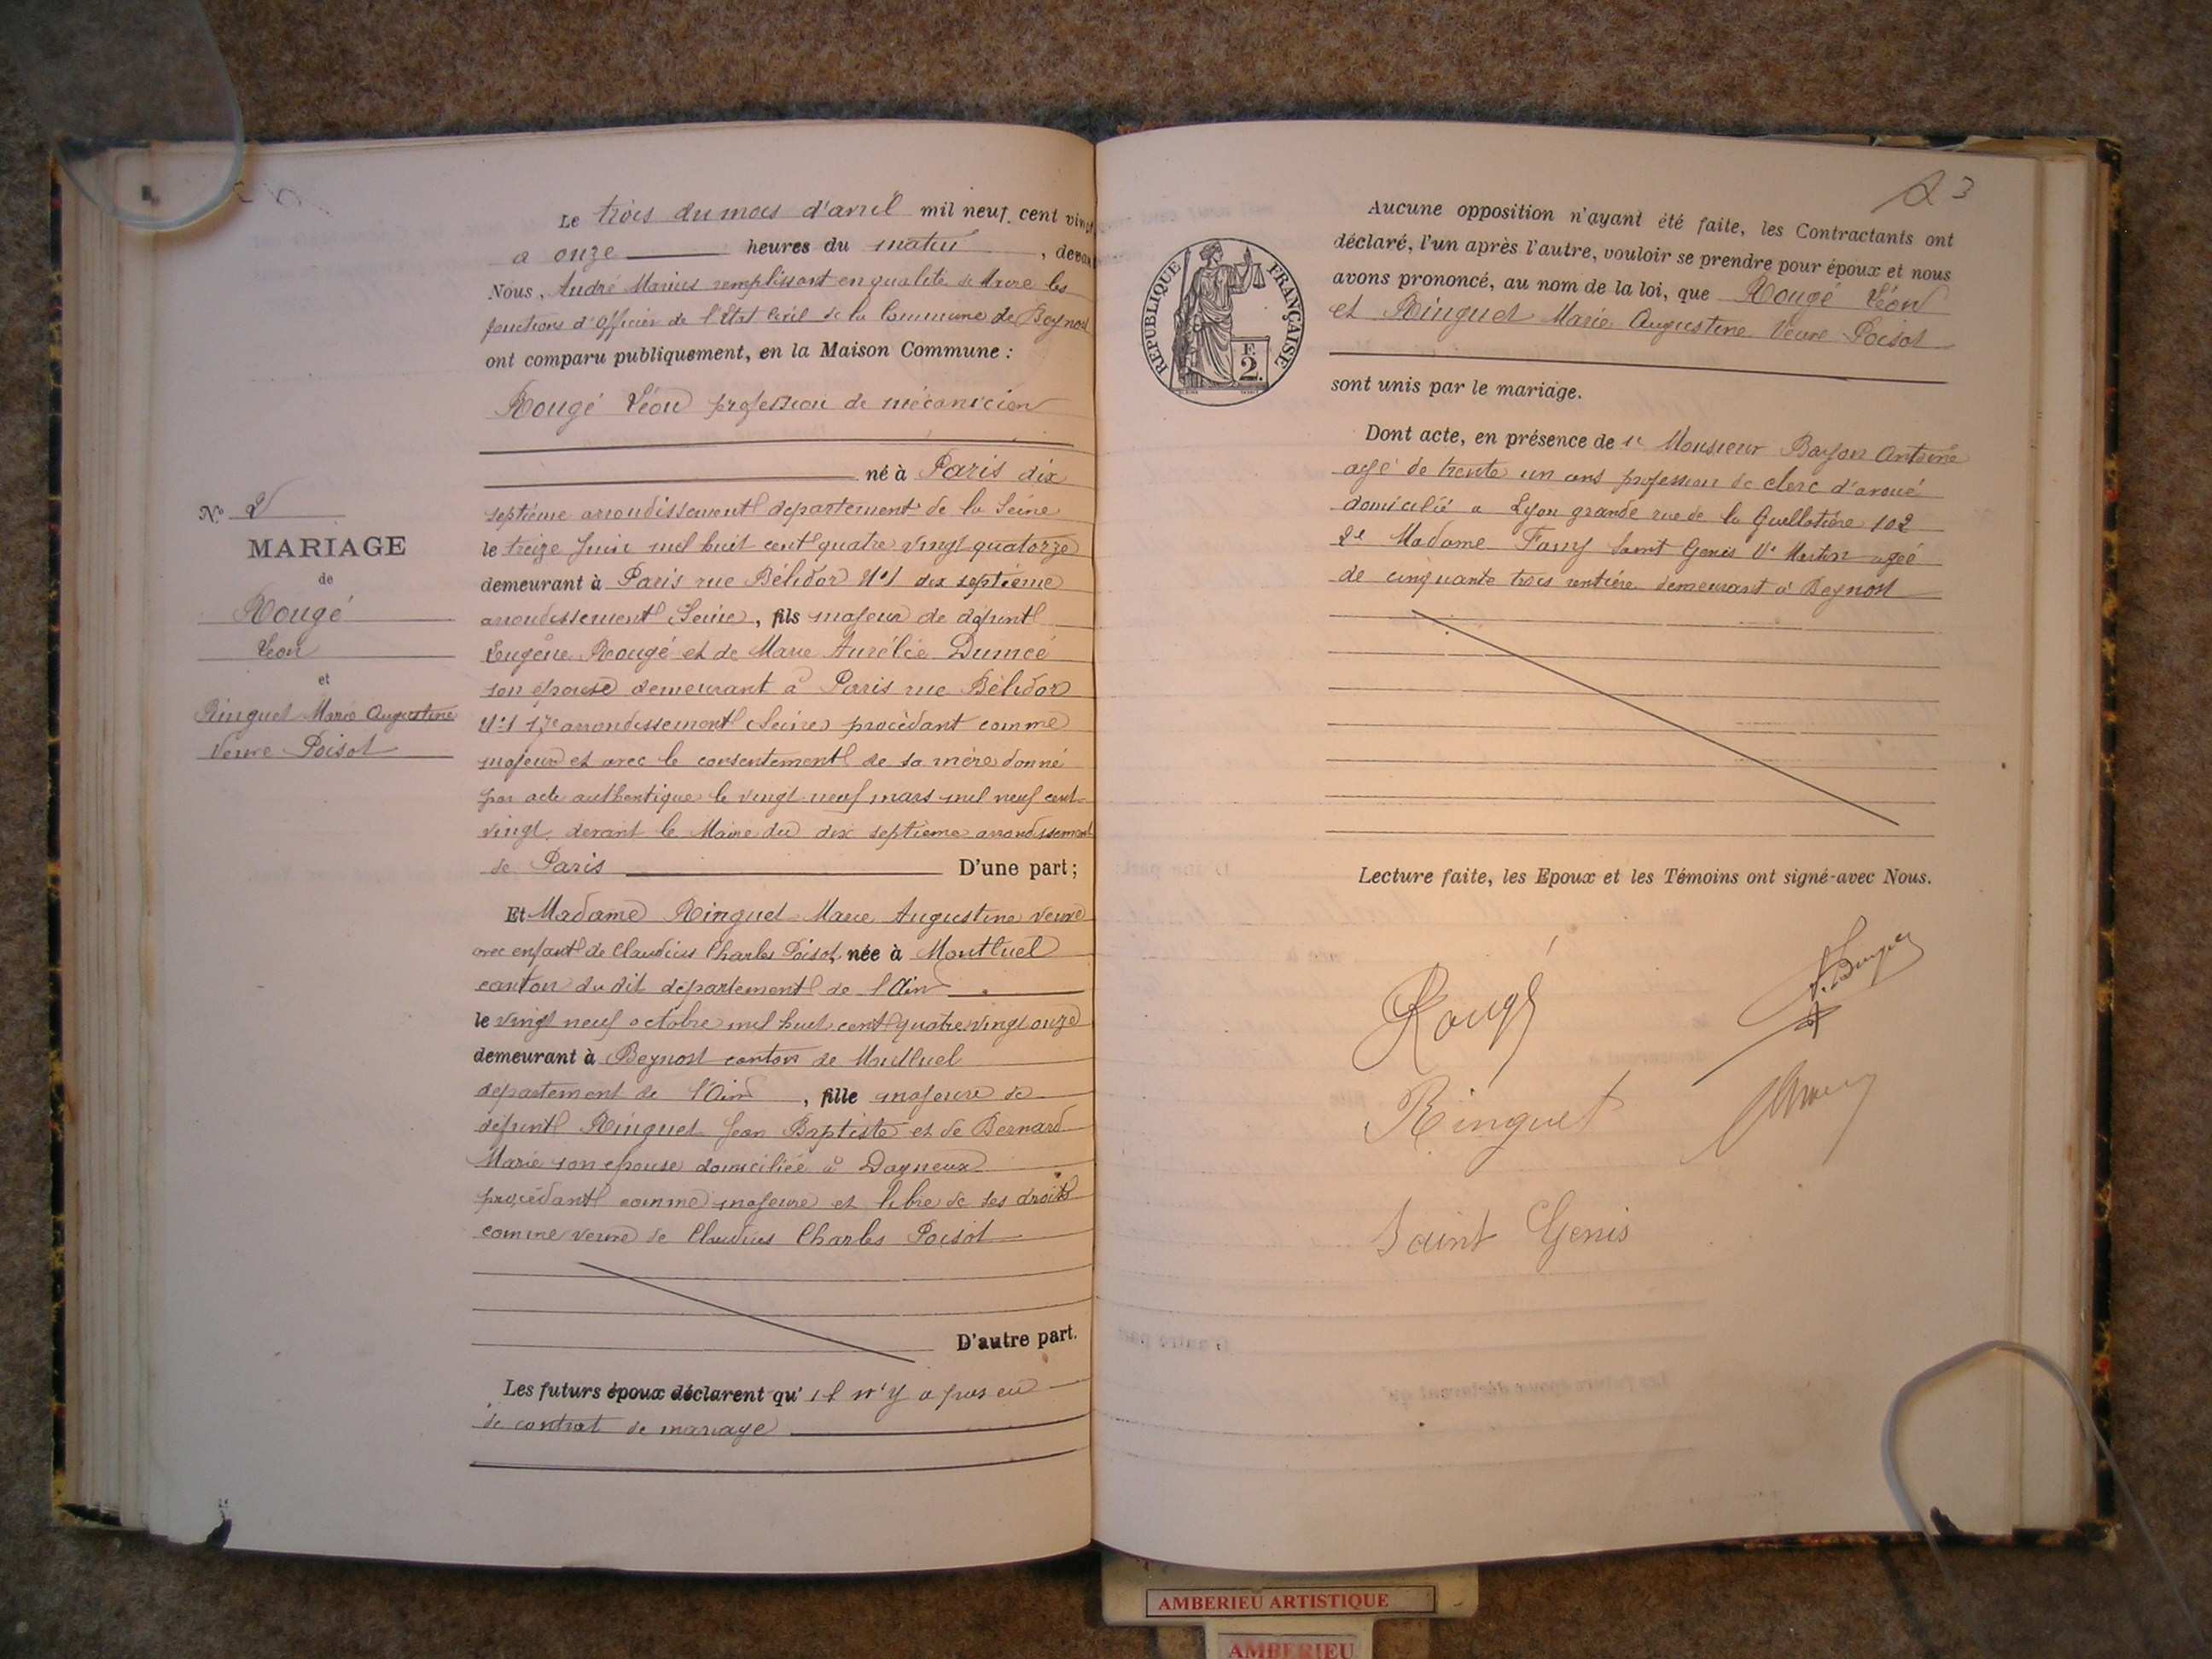 Le trois du mois d'avril mil neuf cent vingt
à onze heures du matin, devant
Nous, André Marius remplissant en qualité de Maire les
fonctions d'Officier de l'Etat Civil de la Commune de Beynost
ont comparu publiquement, en la Maison Commune :
Rougé Léon profession de mécanicien
né à Paris dix
septième arrondissement departement de la Seine
le treize Juin mil huit cent quatre vingt quatorze
demeurant à Paris rue Bélidor N°1 dix septième
arrondissement (Seine), fils majeur de défunt
Eugène Rougé et de Marie Aurélie Dumée
son épouse demeurant à Paris rue Bélidor
N°1 17e arrondissement (Seine) procèdant comme
majeur et avec le consentement de sa mère donné
par acte authentique le vingt neuf mars mil neuf cent
vingt devant le Maire du dix septième arrondissement
de Paris D'une part ;
N° 2
MARIAGE
de
Rougé
Léon
et
Ringuet Marie Augustine
Veuve Poisot
Et Madame Ringuet Marie Augustine veuve
avec enfant de Claudius Charles Poisot, née à Montluel
canton du dit département de l'Ain
le vingt neuf octobre mil huit cent quatre vingt onze
demeurant à Beynost canton de Montluel
departement de l'Ain, fille majeure de
défunt Ringuet Jean Baptiste et de Bernard
Marie son épouse domiciliée à Dagneux
procédant comme majeure et libre de ses droits
comme veuve de Claudius Charles Poisot
D'autre part.
Les futurs époux déclarent qu'il n'y a pas eu
de contrat de mariage
23
REPUBLIQUE FRANÇAISE
F.
2.
Aucune opposition n'ayant été faite, les Contractants ont
déclaré, l'un après l'autre, vouloir se prendre pour époux et nous
avons prononcé, au nom de la loi, que Rougé Léon
et Ringuet Marie Augustine Veuve Poisot
sont unis par le mariage.
Dont acte, en présence de 1e Monsieur Antoine
agé de trente un ans profession de clerc d'avoué
domicilié a Lyon grande rue de la Guillotière 102
2e Madame Fany Saint Genis Ve Martin agée
de cinquante trois rentière demeurant à Beynost
Lecture faite, les Epoux et les Témoins ont signé avec Nous.
Rougé
Ringuet
Saint Genis
AMBERIEU ARTISTIQUE
AMBERIEU